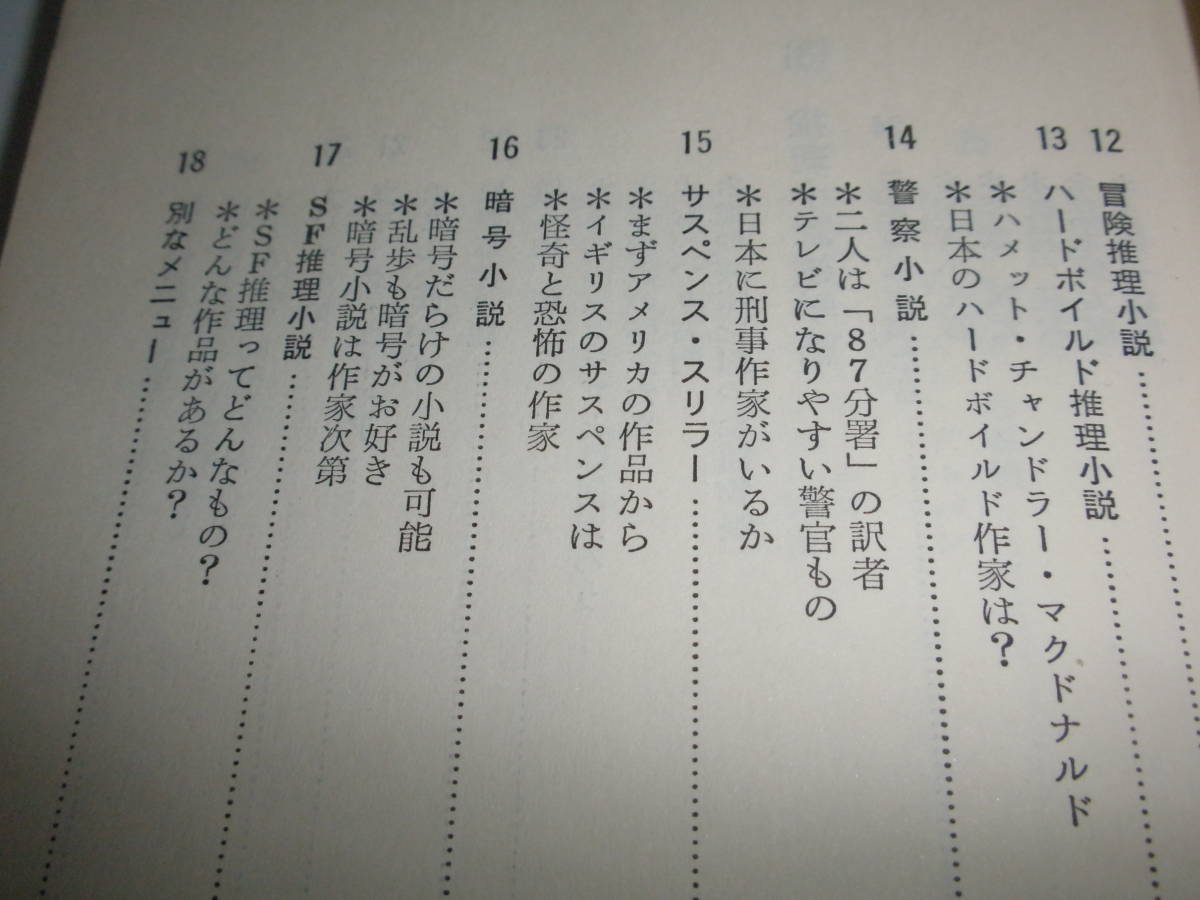 12 冒険推理小説…………
13 ハードボイルド推理小説…………
＊ハメット・チャンドラー・マクドナルド
＊日本のハードボイルド作家は？
14 警察小説…………
＊二人は「87分署」の訳者
＊テレビになりやすい警官もの
＊日本に刑事作家がいるか
15 サスペンス・スリラー…………
＊まずアメリカの作品から
＊イギリスのサスペンスは
＊怪奇と恐怖の作家
16 暗号小説…………
＊暗号だらけの小説も可能
＊乱歩も暗号がお好き
＊暗号小説は作家次第
17 SF推理小説…………
＊SF推理ってどんなもの？
＊どんな作品があるか？
18 別なメニュー…………